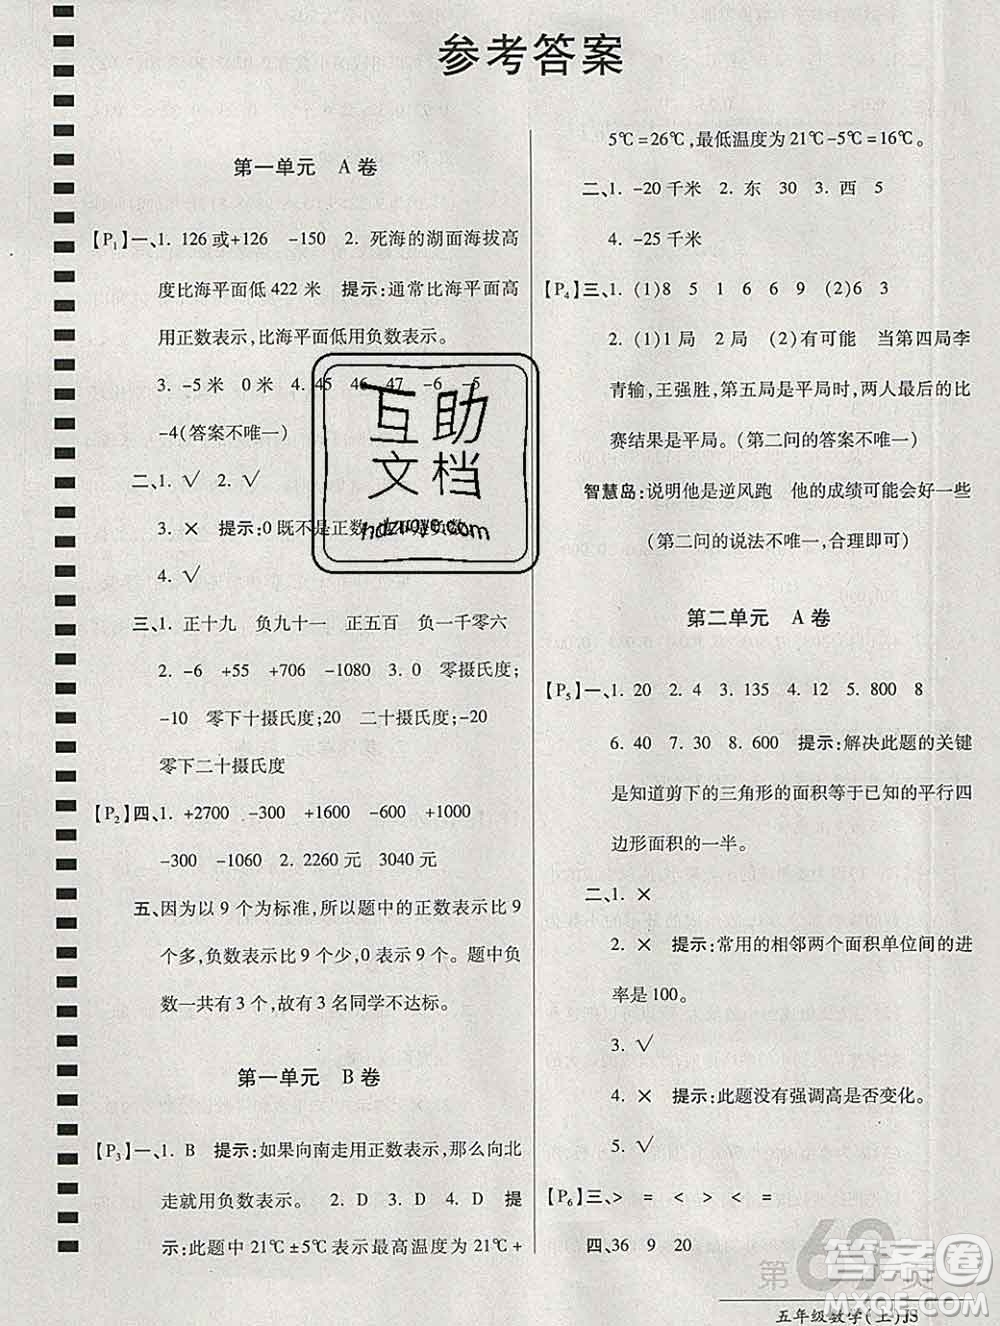 参考答案
第一单元 A卷
【P₁】一、1. 126或+126 -150 2. 死海的湖面海拔高
度比海平面低422米 提示:通常比海平面高
用正数表示,比海平面低用负数表示。
3. -5米 0米 4. 45 46 47 -6 -5
-4(答案不唯一)
二、1. √ 2. √
3. × 提示:0既不是正数,也不是负数。
4. √
三、1. 正十九 负九十一 正五百 负一千零六
2. -6 +55 +706 -1080 3. 0 零摄氏度;
-10 零下十摄氏度;20 二十摄氏度;-20
零下二十摄氏度
【P₂】四、1. +2700 -300 +1000 -600 +1000
-300 -1060 2. 2260元 3040元
五、因为以9个为标准,所以题中的正数表示比9
个多,负数表示比9个少,0表示9个。题中负
数一共有3个,故有3名同学不达标。
第一单元 B卷
【P₃】一、1. B 提示:如果向南走用正数表示,那么向北
走就用负数表示。 2. D 3. D 4. D 提
示:此题中21℃±5℃表示最高温度为21℃+
5℃=26℃,最低温度为21℃-5℃=16℃。
二、1. -20千米 2. 东 30 3. 西 5
4. -25千米
【P₄】三、1. (1)8 5 1 6 6 9 (2)6 3
2. (1)1局 2局 (2)有可能 当第四局李
青输,王强胜,第五局是平局时,两人最后的比
赛结果是平局。(第二问的答案不唯一)
智慧岛:说明他是逆风跑 他的成绩可能会好一些
(第二问的说法不唯一,合理即可)
第二单元 A卷
【P₅】一、1. 20 2. 4 3. 135 4. 12 5. 800 8
6. 40 7. 30 8. 600 提示:解决此题的关键
是知道剪下的三角形的面积等于已知的平行四
边形面积的一半。
二、1. ×
2. × 提示:常用的相邻两个面积单位间的进
率是100。
3. √
4. × 提示:此题没有强调高是否变化。
5. √
【P₆】三、> = < > < =
四、36 9 20
第69页
五年级数学(上)JS
互助
文档
hdzuoye.com
答案圈